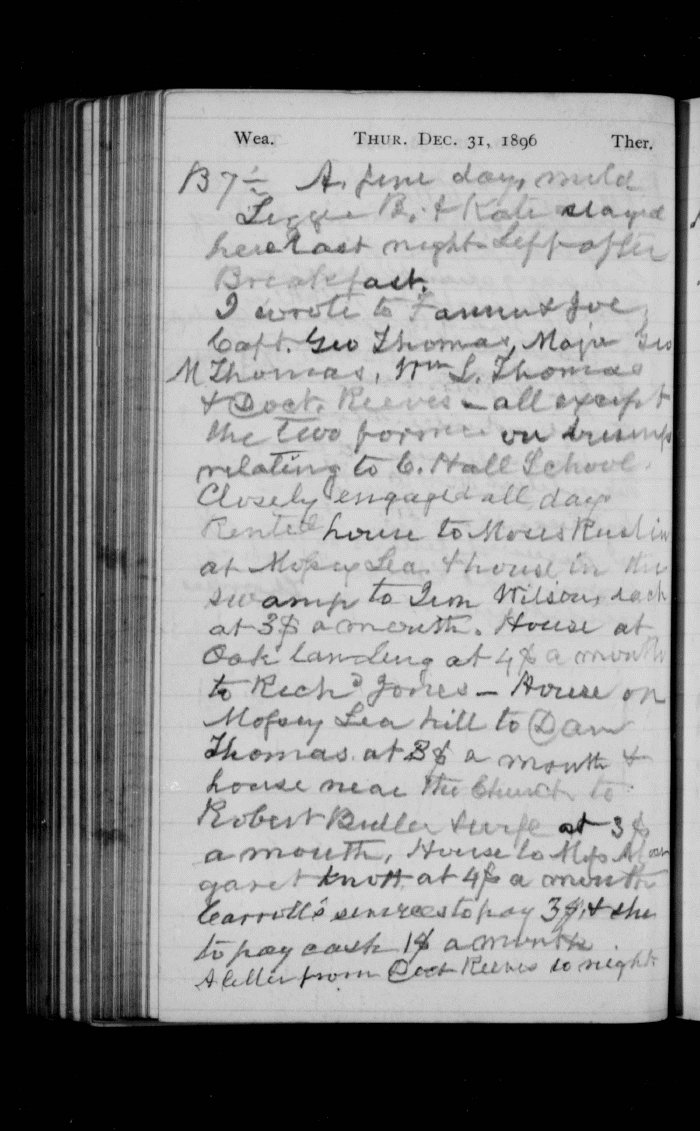 Wea. THUR. DEC. 31, 1896 Ther.
B 7 ÷ A fine day, mild
Lizzie B. & Kate stayed
here last night. Left after
Breakfast.
I wrote to Fannie & Joe,
Capt. Geo Thomas, Major Geo
M Thomas, Wm L. Thomas
& Doct. Reeves - all except
the two former on business
relating to C. Hall School.
Closely engaged all day
Rented house to Moses Ruslin
at Mopsey Lea. & house in the
swamp to Jim Wilson, each
at 3$ a month. House at
Oak landing at 4$ a month
to Richd Jones - House on
Mopsey Lea hill to Dan
Thomas at 3$ a month &
house near the Church to
Robert Butler & wife at 3$
a month, House to Mrs Mar
garet Knott at 4$ a month
Carroll's services to pay 3$, & she
to pay cash 1$ a month.
A letter from Doct Reeves to night